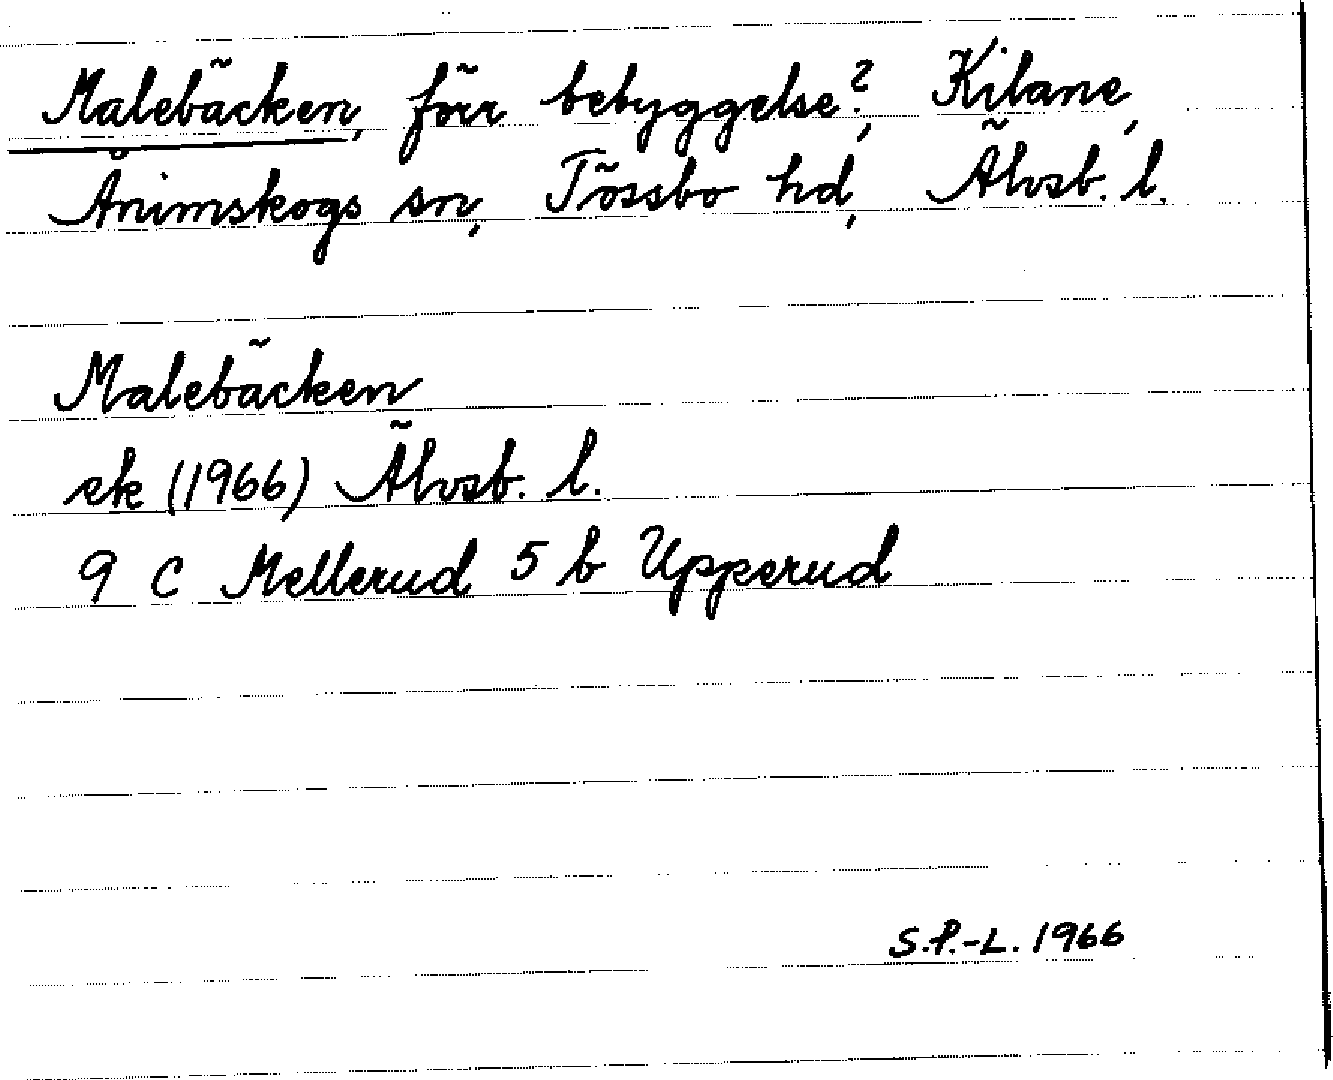 Malebäcken, förr bebyggelse?, Kilane,
Ånimskogs sn, Tössbo hd, Älvsb. l.
Malebäcken
ek (1966) Älvsb. l.
9 C Mellerud 5 b Upperud
S.P.-L. 1966